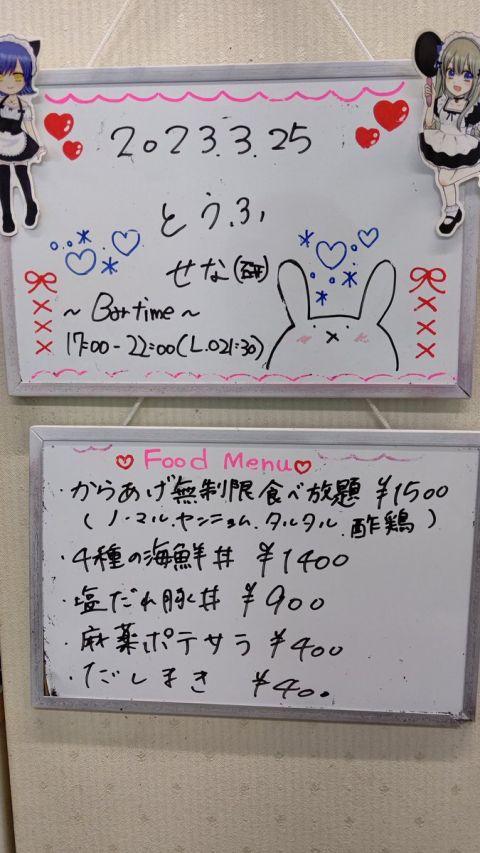 2023.3.25
とうふ
せな(研)
~ Bar time ~
17:00-22:00(L.O21:30)
Food Menu
・からあげ無制限食べ放題 ¥1500
(ノーマル.ヤンニョム.タルタル.酢鶏)
・4種の海鮮丼 ¥1400
・塩だれ豚丼 ¥900
・麻薬ポテサラ ¥400
・だしまき ¥400